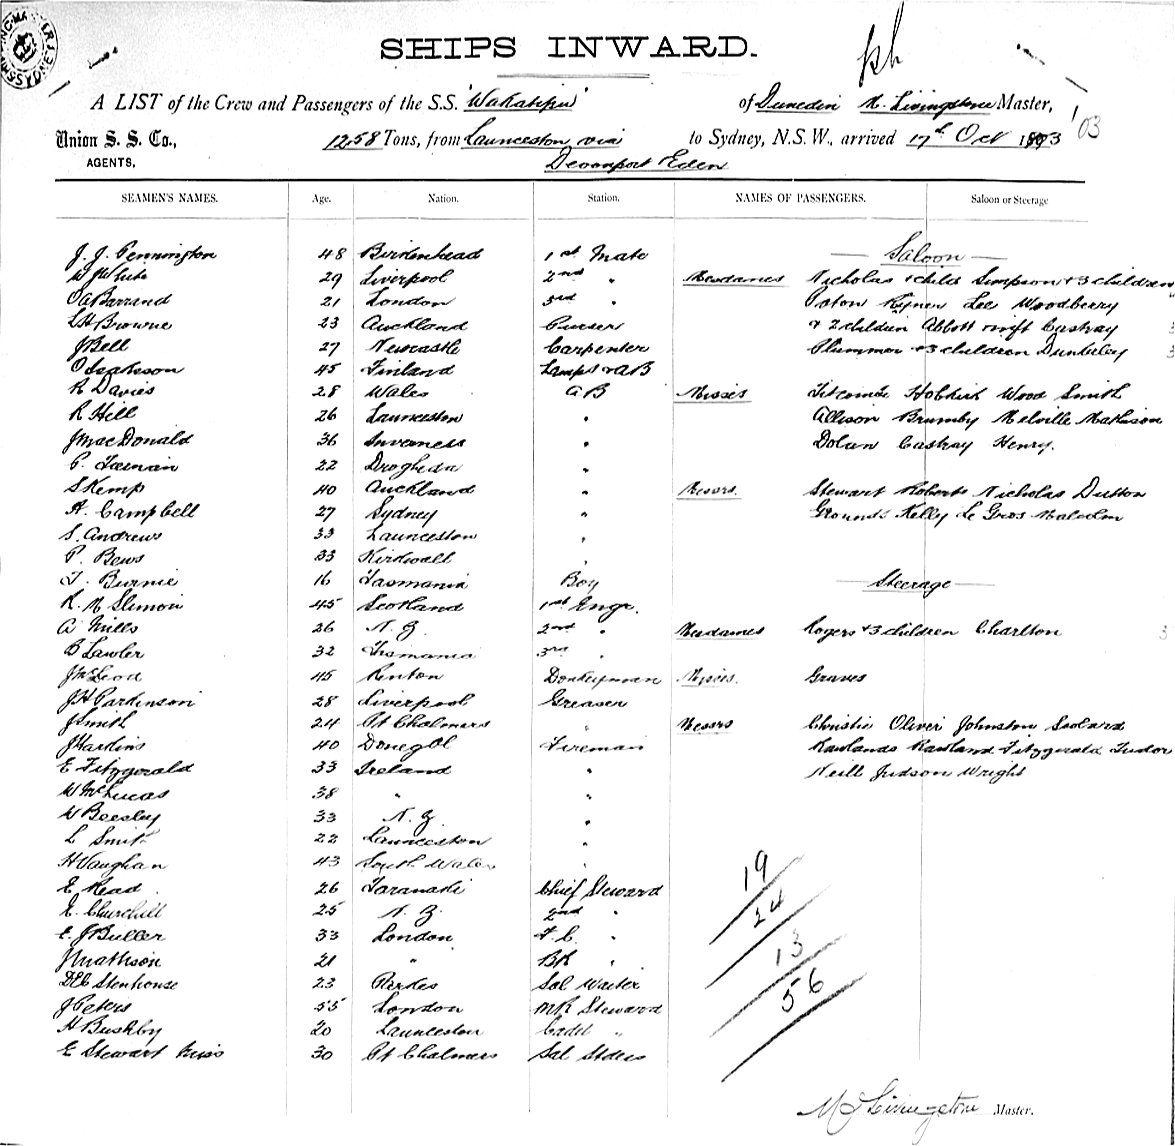 SHIPS INWARD.
A LIST of the Crew and Passengers of the S.S. 'Wakatipu' of Dunedin Livingstone Master,
Union S. S. Co., 1258 Tons, from Launceston via to Sydney, N.S.W., arrived 17th Oct 1903 '03
AGENTS, Devonport Eden
SEAMEN'S NAMES. Age. Nation. Station. NAMES OF PASSENGERS. Saloon or Steerage
J. J. Pennington 48 Birkenhead 1st Mate Saloon
W White 29 Liverpool 2nd " Mesdames Nicholas + child Simpson + 3 children
Barrand 21 London 3rd " Lee Woodberry
Browne 23 Auckland Purser + 2 children Abbott Swift Castray
J Bell 27 Newcastle Carpenter Plummer + 3 children Dunkerley
O Isaksson 45 Finland Lamps + AB
R Davies 28 Wales AB Misses Titcombe Hobkirk Wood Smith
R Hill 26 Launceston " Allison Brumby Melville Mathison
J MacDonald 36 Inverness " Dolan Castray Henry.
22 Drogheda "
S Kemp 40 Auckland " Messrs. Stewart Roberts Nicholas Dutton
A. Campbell 27 Sydney " Grounds Kelly Le Gros Malcolm
S. Andrews 33 Launceston "
P. Bews 33 Kirkwall "
T. Burnie 16 Tasmania Boy Steerage
R. M Slimon 45 Scotland 1st Engr.
A Mills 26 N. Z. 2nd " Mesdames Rogers + 3 children Charlton 3
B Lawler 32 Tasmania 3rd "
J McLeod 45 Renton Donkeyman Misses. Graves
J H Parkinson 28 Liverpool Greaser
J Smith 24 Pt Chalmers " Messrs Christie Oliver Johnston
J Harkins 40 Donegal Fireman Rawlands Rowland Fitzgerald Tudor
E Fitzgerald 33 Ireland " Neill Judson Wright
W McLucas 38 " "
W Beesley 33 N. Z. "
L Smith 22 Launceston "
H Vaughan 43 South Wales "
E. Read 26 Taranaki Chief Steward 19
E. Churchill 25 N. Z. 2nd " 24
E. J Buller 33 London F. C. "
J Mathson 21 " BK " 13
Stenhouse 23 Parkes Sal Waiter 56
J Peters 55 London MR Steward
H Bushby 20 Launceston Cadet "
E Stewart Miss 30 Pt Chalmers Sal Stdess
M J Livingstone Master.